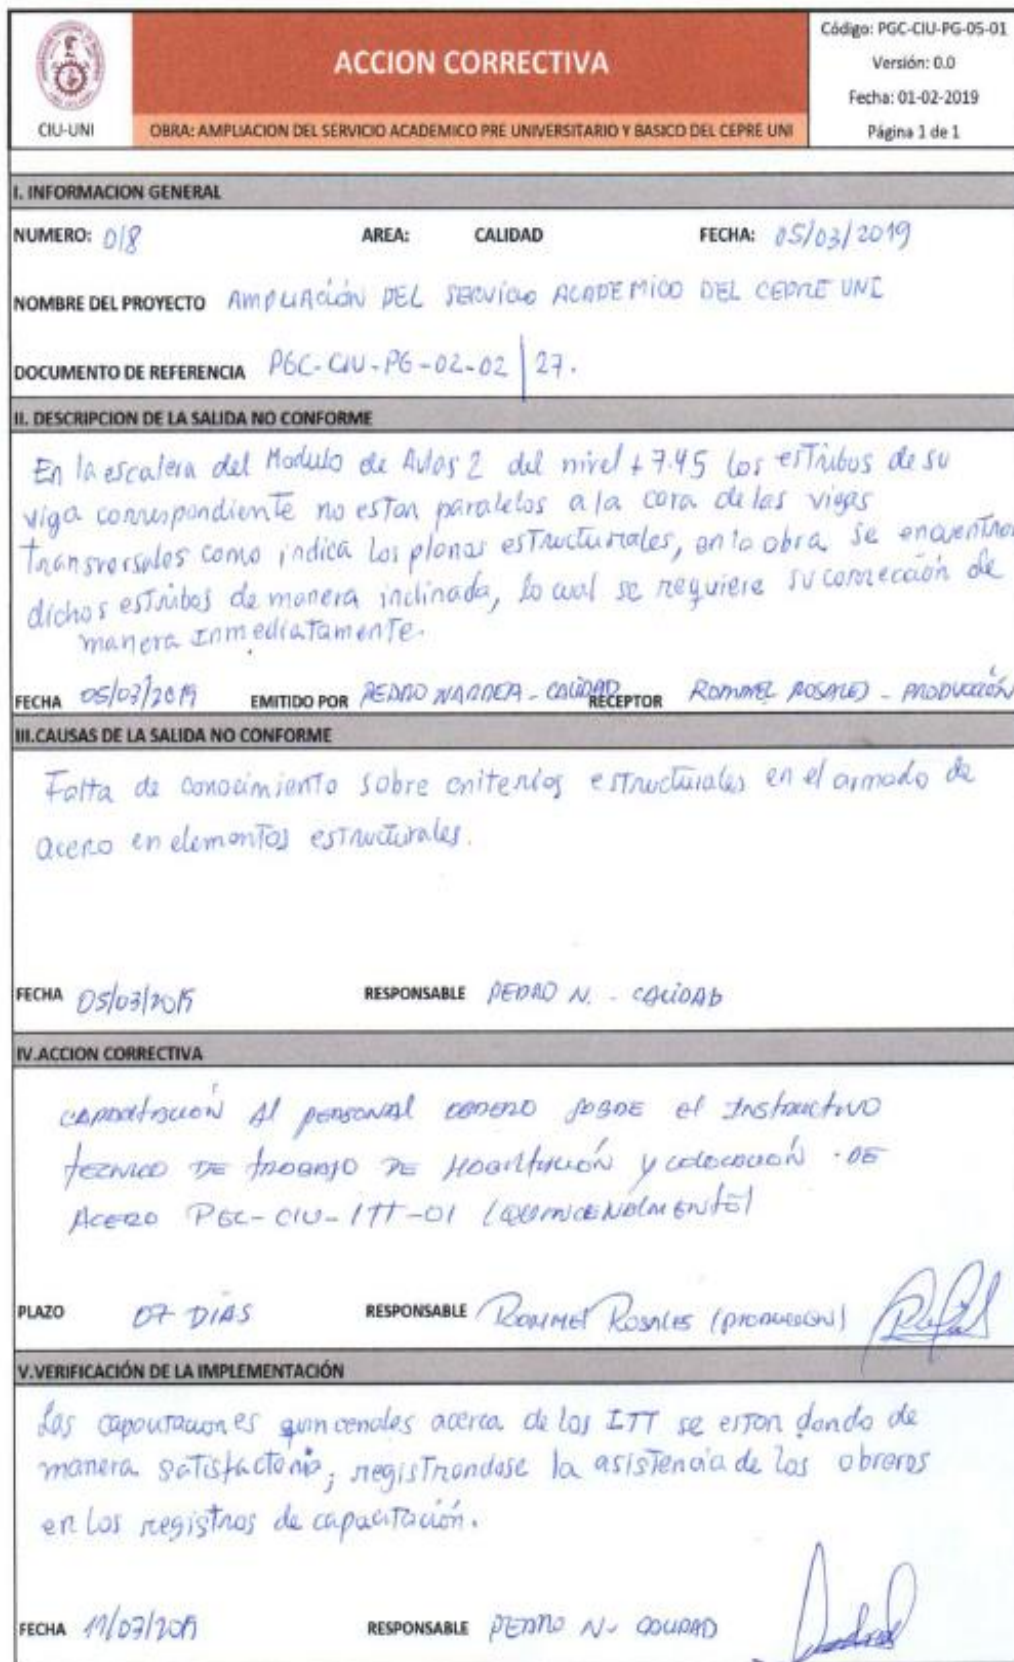 ACCION CORRECTIVA
CIU-UNI
OBRA: AMPLIACION DEL SERVICIO ACADEMICO PRE UNIVERSITARIO Y BASICO DEL CEPRE UNI
Código: PGC-CIU-PG-05-01
Versión: 0.0
Fecha: 01-02-2019
Página 1 de 1
I. INFORMACION GENERAL
NUMERO: 018 AREA: CALIDAD FECHA: 05/03/2019
NOMBRE DEL PROYECTO AMPLIACIÓN DEL SERVICIO ACADEMICO DEL CEPRE UNI
DOCUMENTO DE REFERENCIA PGC-CIU-PG-02-02 | 27.
II. DESCRIPCION DE LA SALIDA NO CONFORME
En la escalera del Modulo de Aulas 2 del nivel +7.45 los estribos de su
viga correspondiente no estan paralelos a la cara de las vigas
transversales como indica los planos estructurales, en la obra se encuentran
dichos estribos de manera inclinada, lo cual se requiere su corrección de
manera Inmediatamente.
FECHA 05/03/2019 EMITIDO POR PEDRO NARREA - CALIDAD RECEPTOR ROMMEL ROSALES - PRODUCCIÓN
III.CAUSAS DE LA SALIDA NO CONFORME
Falta de conocimiento sobre criterios estructurales en el armado de
acero en elementos estructurales.
FECHA 05/03/2019 RESPONSABLE PEDRO N. - CALIDAD
IV.ACCION CORRECTIVA
CAPACITACIÓN Al PERSONAL OBRERO SOBRE el Instructivo
TECNICO DE TRABAJO DE HABILITACIÓN y COLOCACIÓN DE
ACERO PGC-CIU-ITT-01 (QUINCENALMENTE)
PLAZO 07 DIAS RESPONSABLE ROMMEL ROSALES (PRODUCCION)
V.VERIFICACIÓN DE LA IMPLEMENTACIÓN
Las capacitaciones quincenales acerca de los ITT se estan dando de
manera satisfactoria, registrandose la asistencia de los obreros
en los registros de capacitación.
FECHA /03/2019 RESPONSABLE PEDRO N. CALIDAD